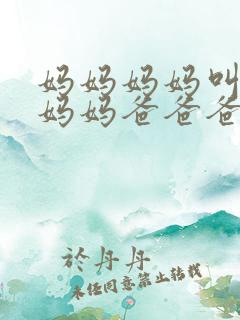 妈妈妈妈叫
妈妈爸爸爸
於丹丹
未经同意禁止转载